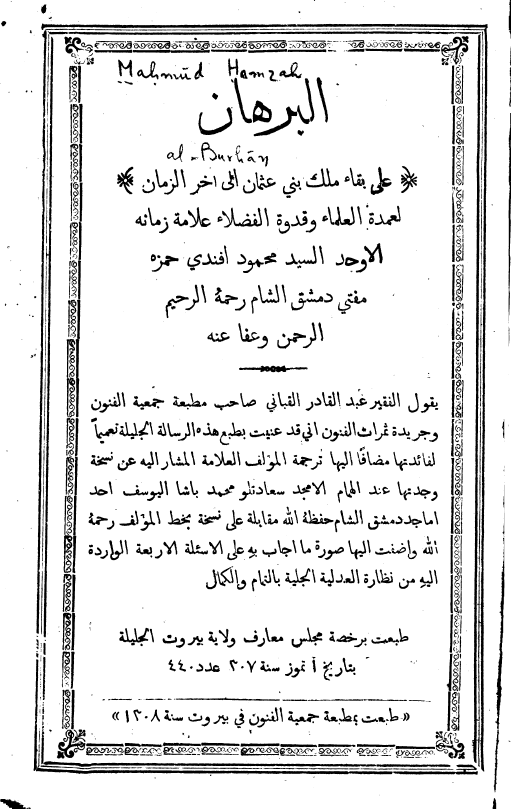 Maḥmūd Ḥamzah
البرهان
al-Burhān
على بقاء ملك بني عثمان الى اخر الزمان
لعمدة العلماء وقدوة الفضلاء علامة زمانه
الاوحد السيد محمود افندي حمزه
مفتي دمشق الشام رحمهُ الرحيم
الرحمن وعفا عنه
يقول الفقير عبد القادر القباني صاحب مطبعة جمعية الفنون
وجريدة ثمرات الفنون اني قد عنيت بطبع هذه الرسالة الجليلة تعميماً
لفائدتها مضافًا اليها ترجمة المؤلف العلامة المشار اليه عن نسخة
وجدتها عند الهمام الامجد سعادتلو محمد باشا اليوسف احد
اماجد دمشق الشام حفظهُ الله مقابلة على نسخة بخط المؤلف رحمهُ
الله واضفت اليها صورة ما اجاب بهِ على الاسئلة الاربعة الواردة
اليهِ من نظارة العدلية الجلية بالتمام والكمال
طبعت برخصة مجلس معارف ولاية بيروت الجليلة
بتاريخ ١ تموز سنة ٣٠٧ عدد ٤٤٠
«طبعت بمطبعة جمعية الفنون في بيروت سنة ١٣٠٨»